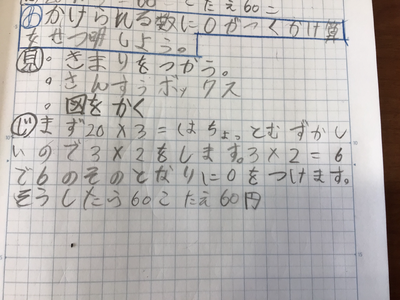 こたえ60こ
めかけられる数に0がつくかけ算
をせつ明しよう。
見。きまりをつかう。
。さんすうボックス
。図をかく
じまず20×3=はちょっとむずかし
いので3×2をします。3×2=6
で6のそのとなりに0をつけます。
そうしたら60こたえ60円